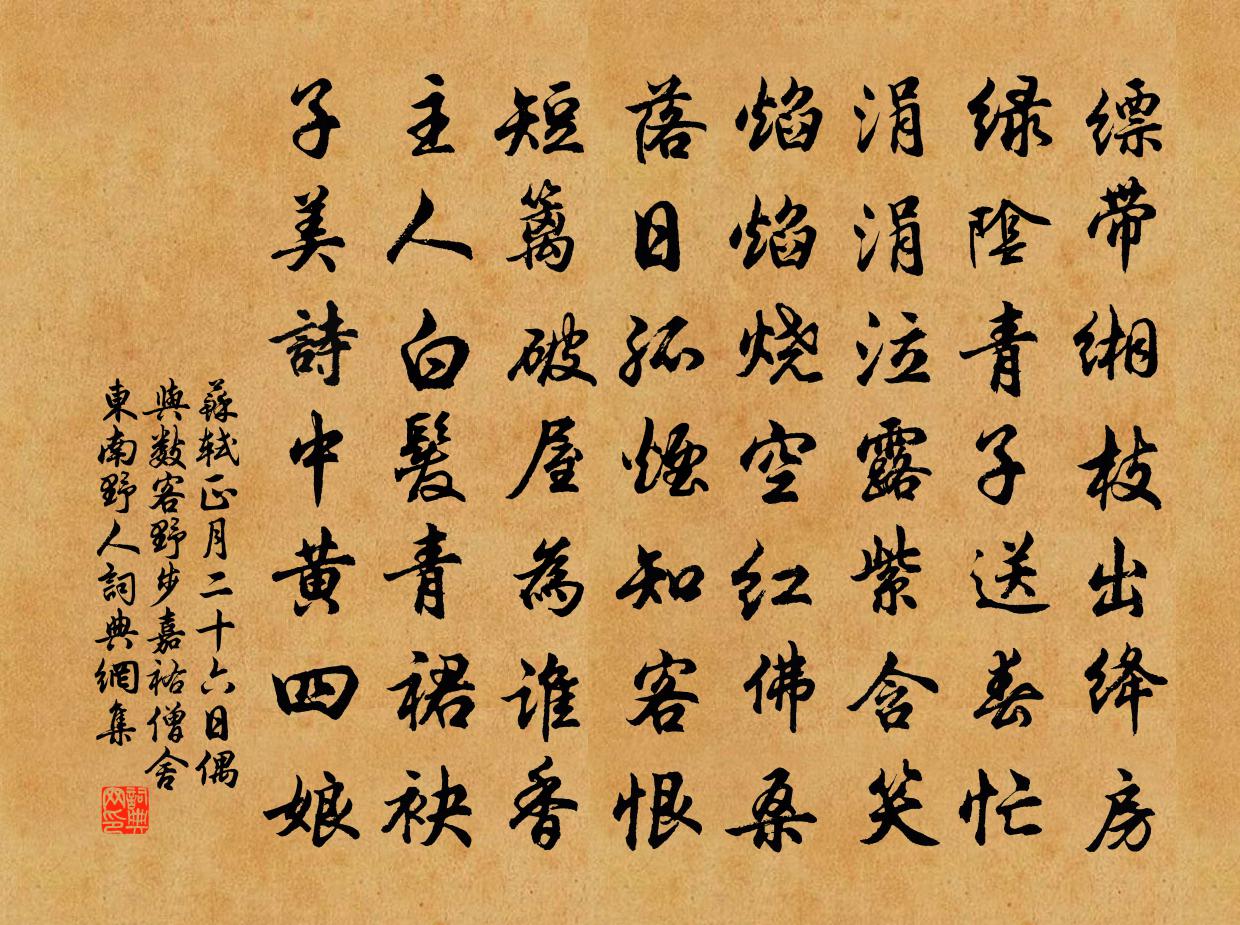 缥带缃枝出绛房
緑陰青子送春忙
涓涓泣露紫含笑
焰焰烧空红佛桑
落日孤煙知客恨
短籬破屋為誰香
主人白髪青裙袂
子美詩中黄四娘
蘇軾正月二十六日偶
與數客野步嘉祐僧舍
東南野人詞典網集
詞典网印